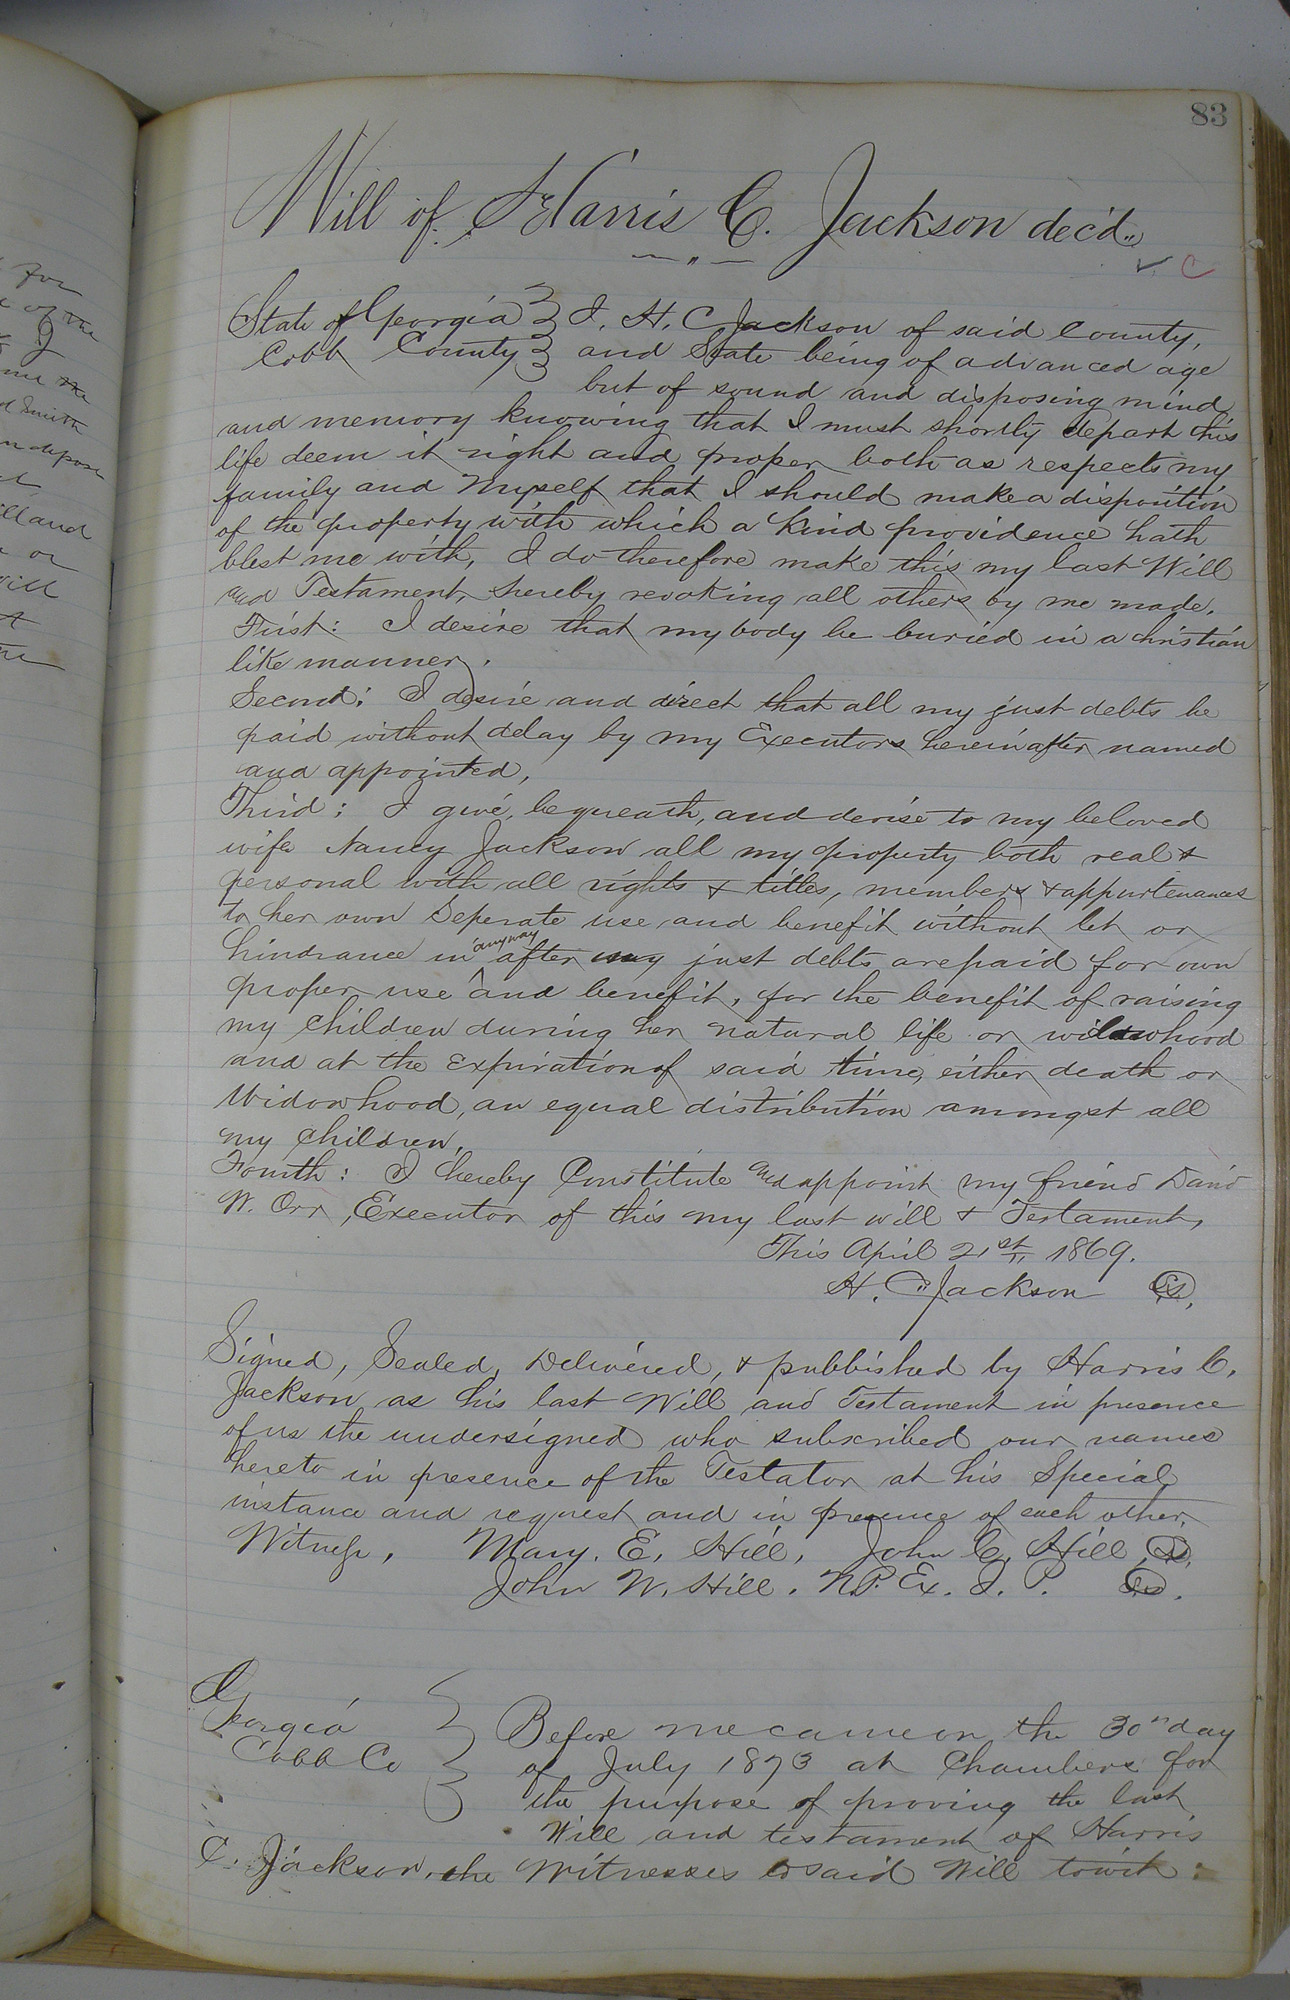 83
Will of Harris C. Jackson dec'd.
State of Georgia } I, H. C Jackson of said County,
Cobb County } and State being of advanced age
but of sound and disposing mind
and memory knowing that I must shortly depart this
life deem it right and proper both as respects my
family and Myself that I should make a disposition
of the property with which a kind providence hath
blest me with, I do therefore make this my last Will
and Testament, hereby revoking all others by me made.
First: I desire that my body be buried in a christian
like manner.
Second: I desire and direct that all my just debts be
paid without delay by my Executors hereinafter named
and appointed,
Third: I give, bequeath, and devise to my beloved
wife Nancy Jackson all my property both real &
personal with all rights & titles, members & appurtenances
to her own Seperate use and benefit without let or
hindrance in anyway after my just debts are paid for own
proper use and benefit, for the benefit of raising
my children during her natural life or widowhood
and at the expiration of said time, either death or
Widowhood, an equal distribution amongst all
my children.
Fourth: I hereby Constitute and appoint my friend David
W. Orr, Executor of this my last will & Testament,
This April 21st, 1869.
H. C Jackson L.S.
Signed, Sealed, Delivered, & pubbished by Harris C.
Jackson as his last Will and Testament in presence
of us the undersigned who subscribed our names
hereto in presence of the Testator at his Special
instance and request and in presence of each other.
Witness, Mary. E. Hill, John C. Hill L.S.
John W. Hill. N.P. Ex. J. P. L.S.
Georgia } Before me came on the 30th day
Cobb Co } of July 1873 at Chambers for
the purpose of proving the last
Will and testament of Harris
C. Jackson, the Witnesses to said Will towit:
for
of the
I
me the
d Smith
depose
ill and
or
will